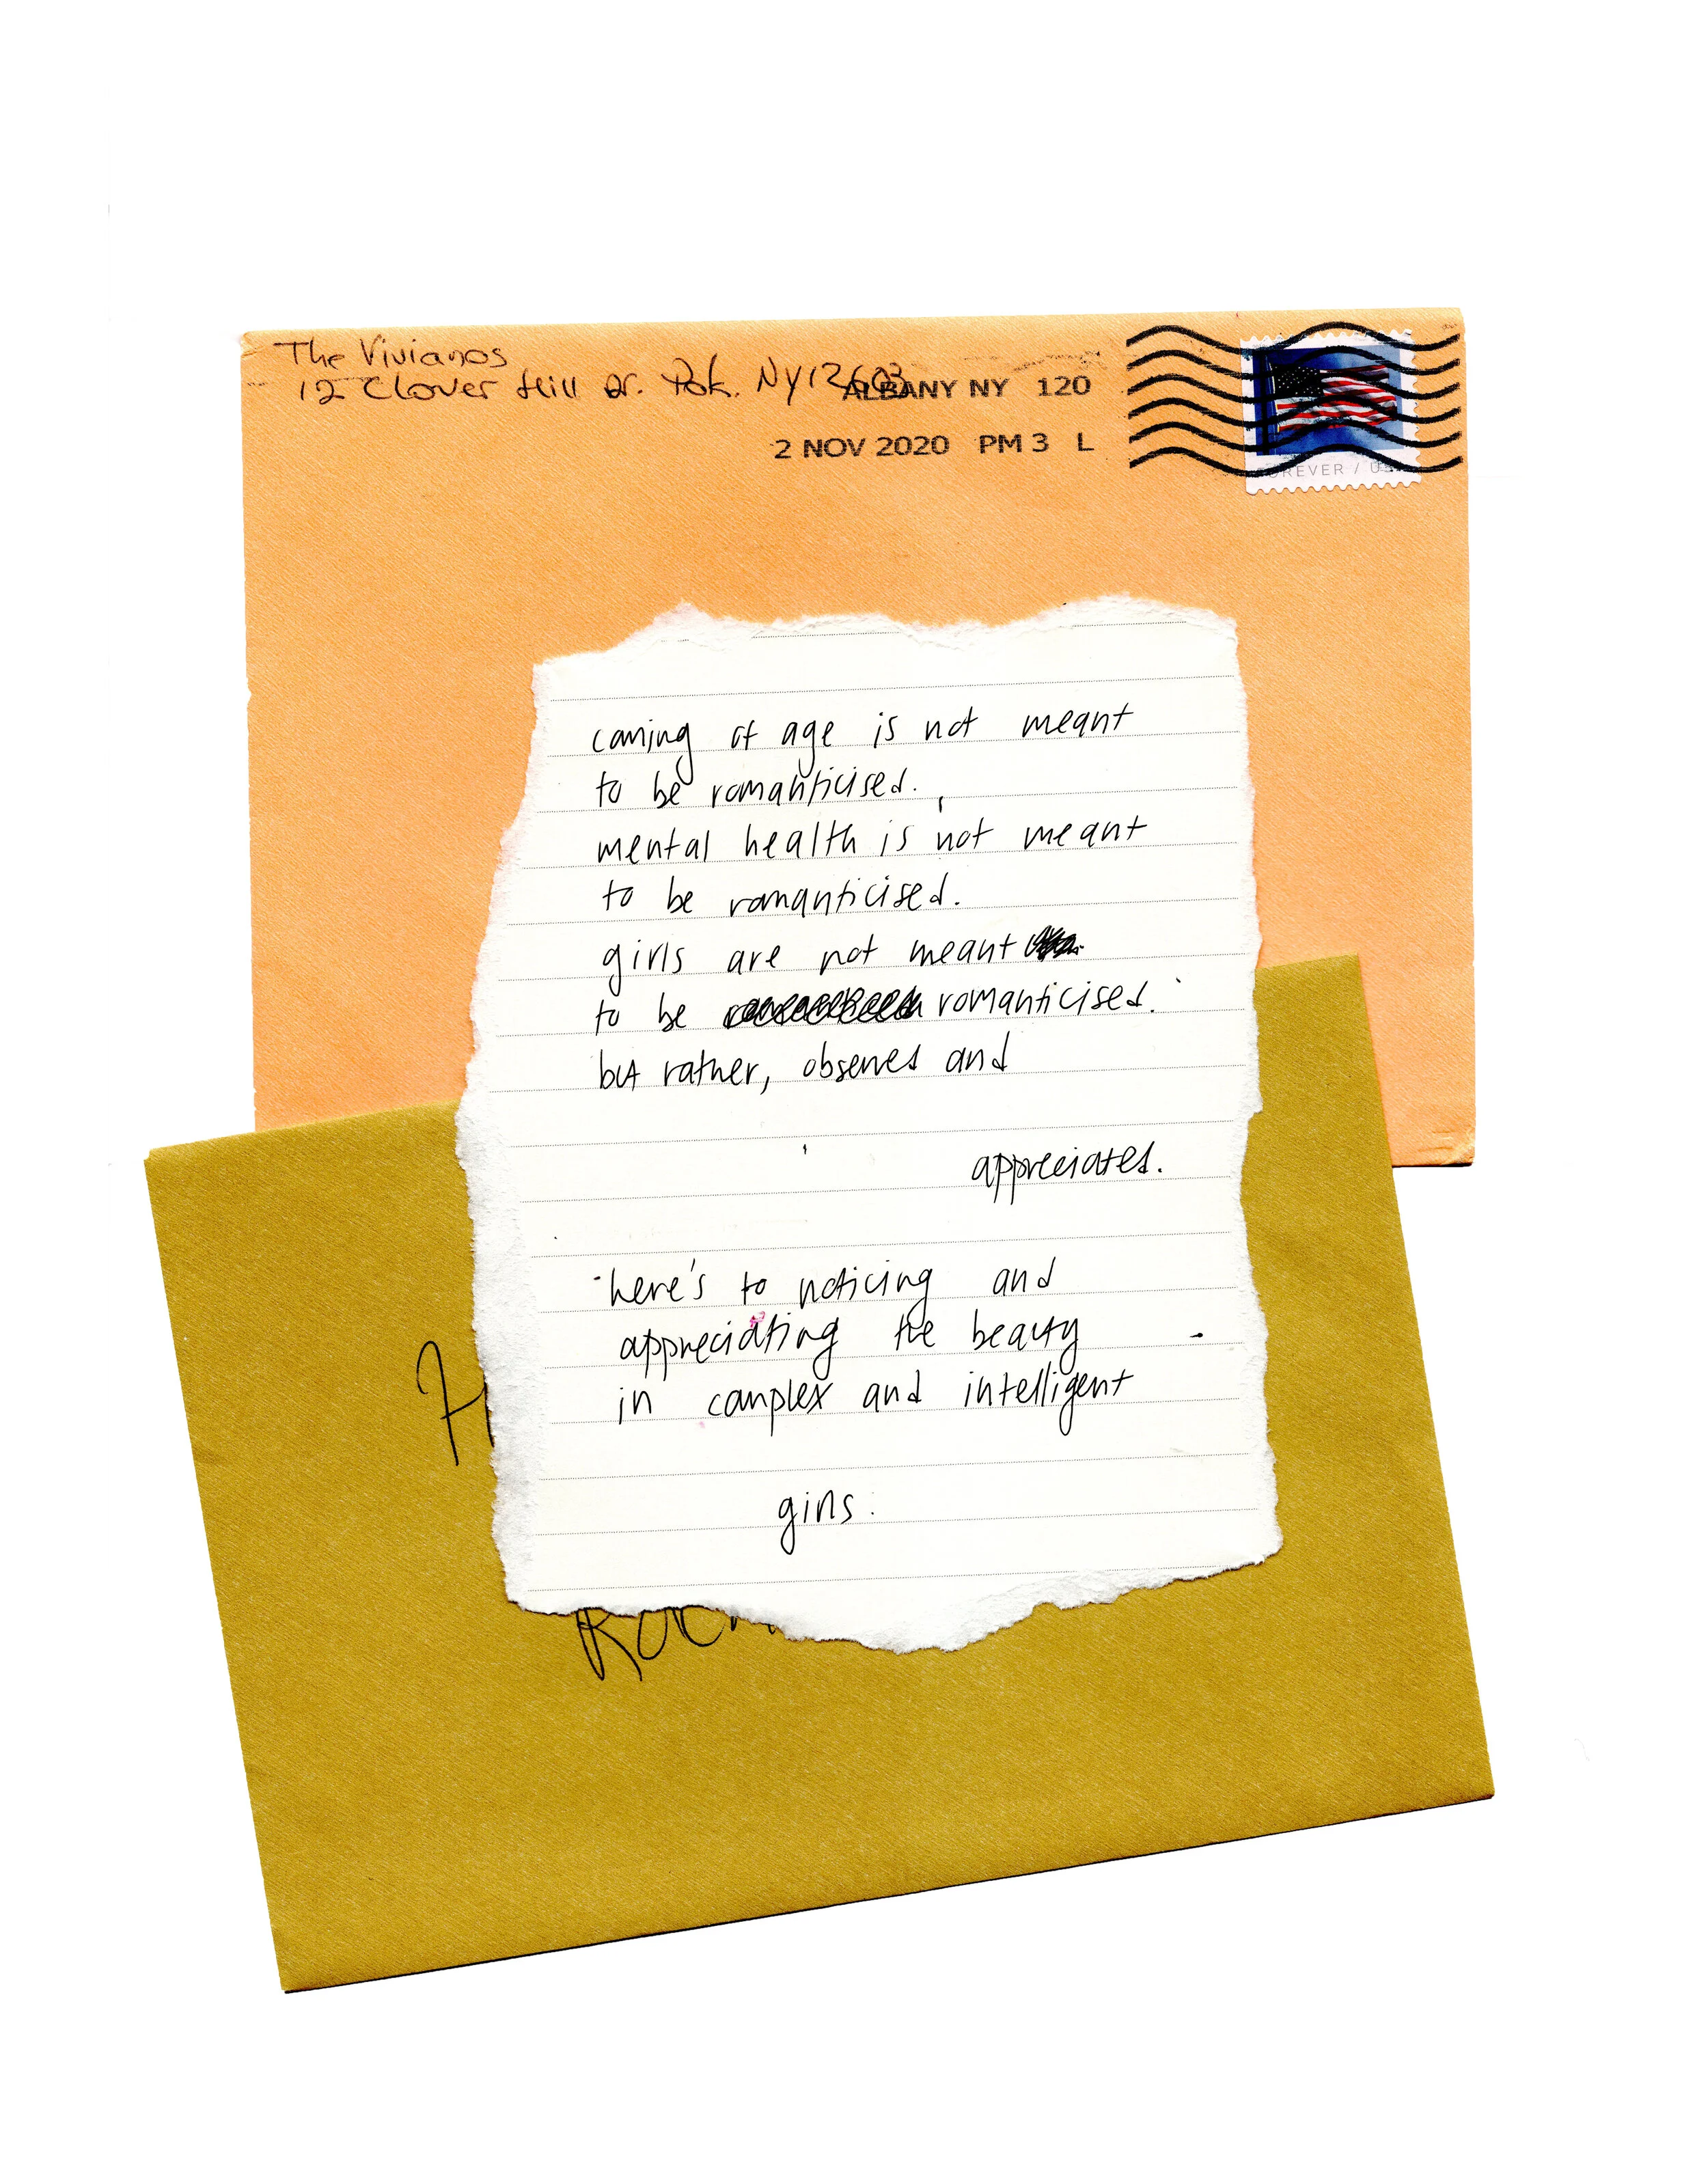 The Vivianos
12 Clover Hill Dr. Pok. NY 12603
ALBANY NY 120
2 NOV 2020 PM 3 L
FOREVER / USA
coming of age is not meant
to be romanticised.
mental health is not meant
to be romanticised.
girls are not meant
to be romanticised.
but rather, observed and
appreciated.
here's to noticing and
appreciating the beauty
in complex and intelligent
girls.